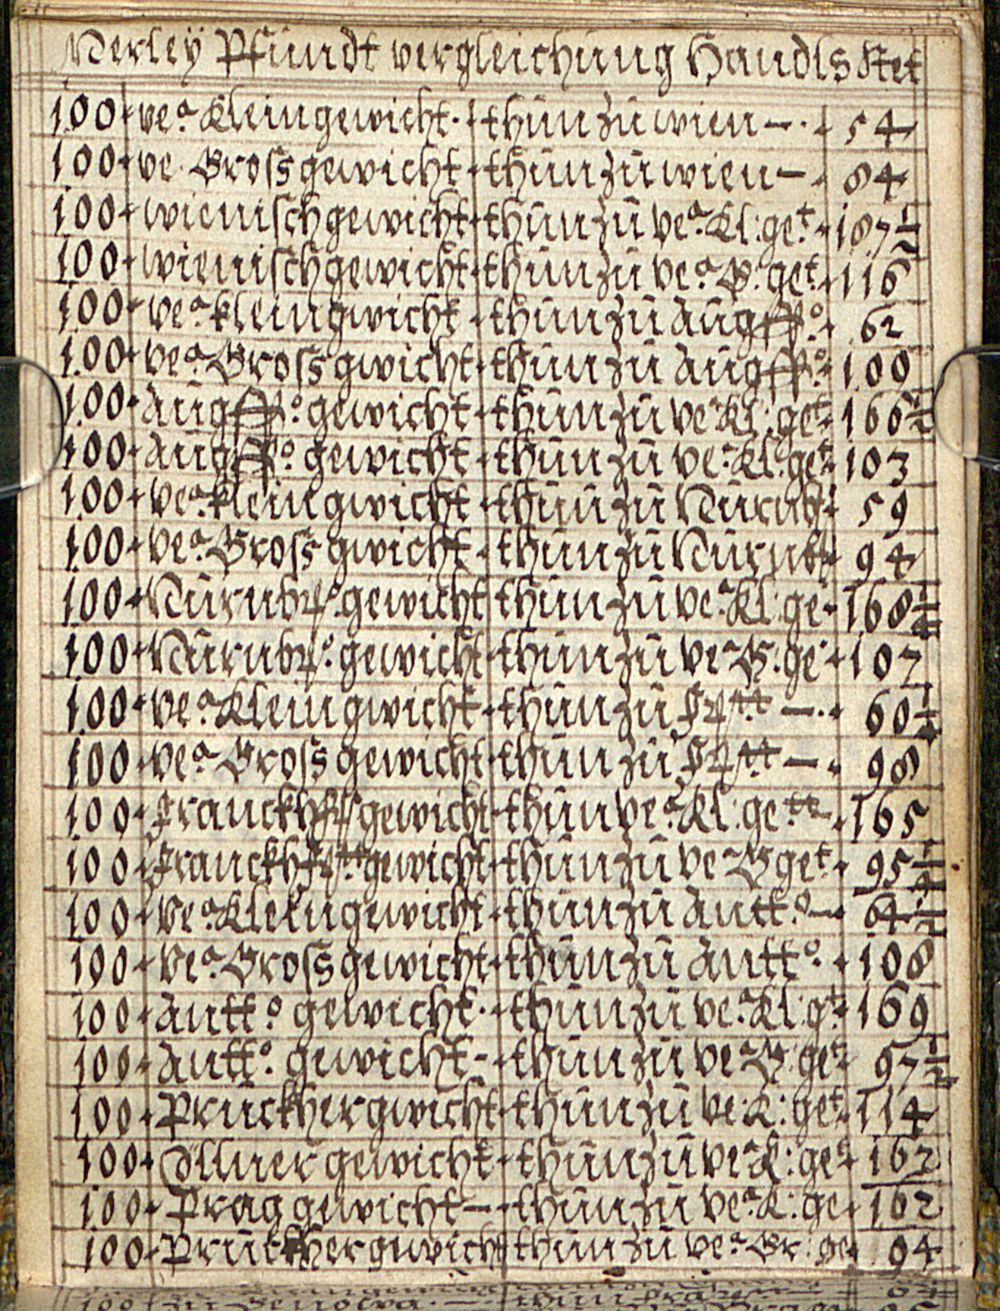 Verleÿ Pfundt vergleichung Handls Stet
100 veª. Kleingewicht. thun zu wien — . 54
100 ve. Grossgewicht thun zu wien — . 84
100 wienischgewicht thun zu veª. Kl: geᵗ. 187½
100 wienischgewicht thun zu veª. G. get. 116
100 veª. kleingwicht thun zu Augspº. 62
100 veª. Grossgwicht thun zu Augspº. 100
100 Augspº. gewicht thun zu veª Kl: get 166½
100 Augspº. gewicht thun zu veª. Kl. get 103
100 veª. kleingwicht thun zu Nürnb 59
100 veª. Grossgwicht thun zu Nürnb 94
100 Nürnbrº. gewicht thun zu veª. Kl: ge 168¼
100 Nürnbrº. gewicht thun zu veª G. ge 107
100 veª. Kleingwicht thun zu — . 60
100 veª. Grossgwicht thun zu — . 98
100 gewicht thun veª. Kl: ge 165
100 gewicht thun zu ve G get. 95½
100 Veª. Kleingewicht thun zu Anttº. — 64½
100 Veª. Grossgewicht thun zu Anttº. 108
100 Anttº. gewicht. thun zu veª. Kl: gt 169
100 Anttº. gewicht - thun zu veª G: get 97½
100 Pruckhergwicht thun zu ve. K: get 114
100 Cöllner gewicht thun zu veª K: ge 162
100 Prag gewicht — thun zu veª. K: ge 162
100 Pruckhergewicht thun zu veª. Gr: ge 94
100 zu Genova. — thun